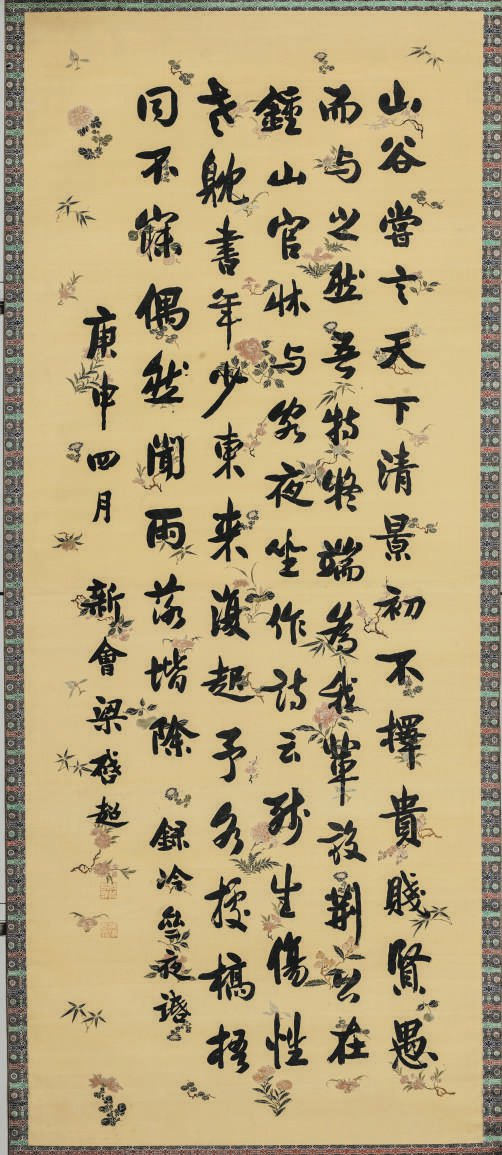 山谷嘗言天下清景初不擇貴賤賢愚
而与之然吾特疑端為我輩設荆公在
鍾山官林与客夜坐作詩云殘生傷性
老躭書年少東来復起予各據槁梧
同不寐偶然聞雨落堦除 録冷齋夜話
庚申四月 新會梁啓超